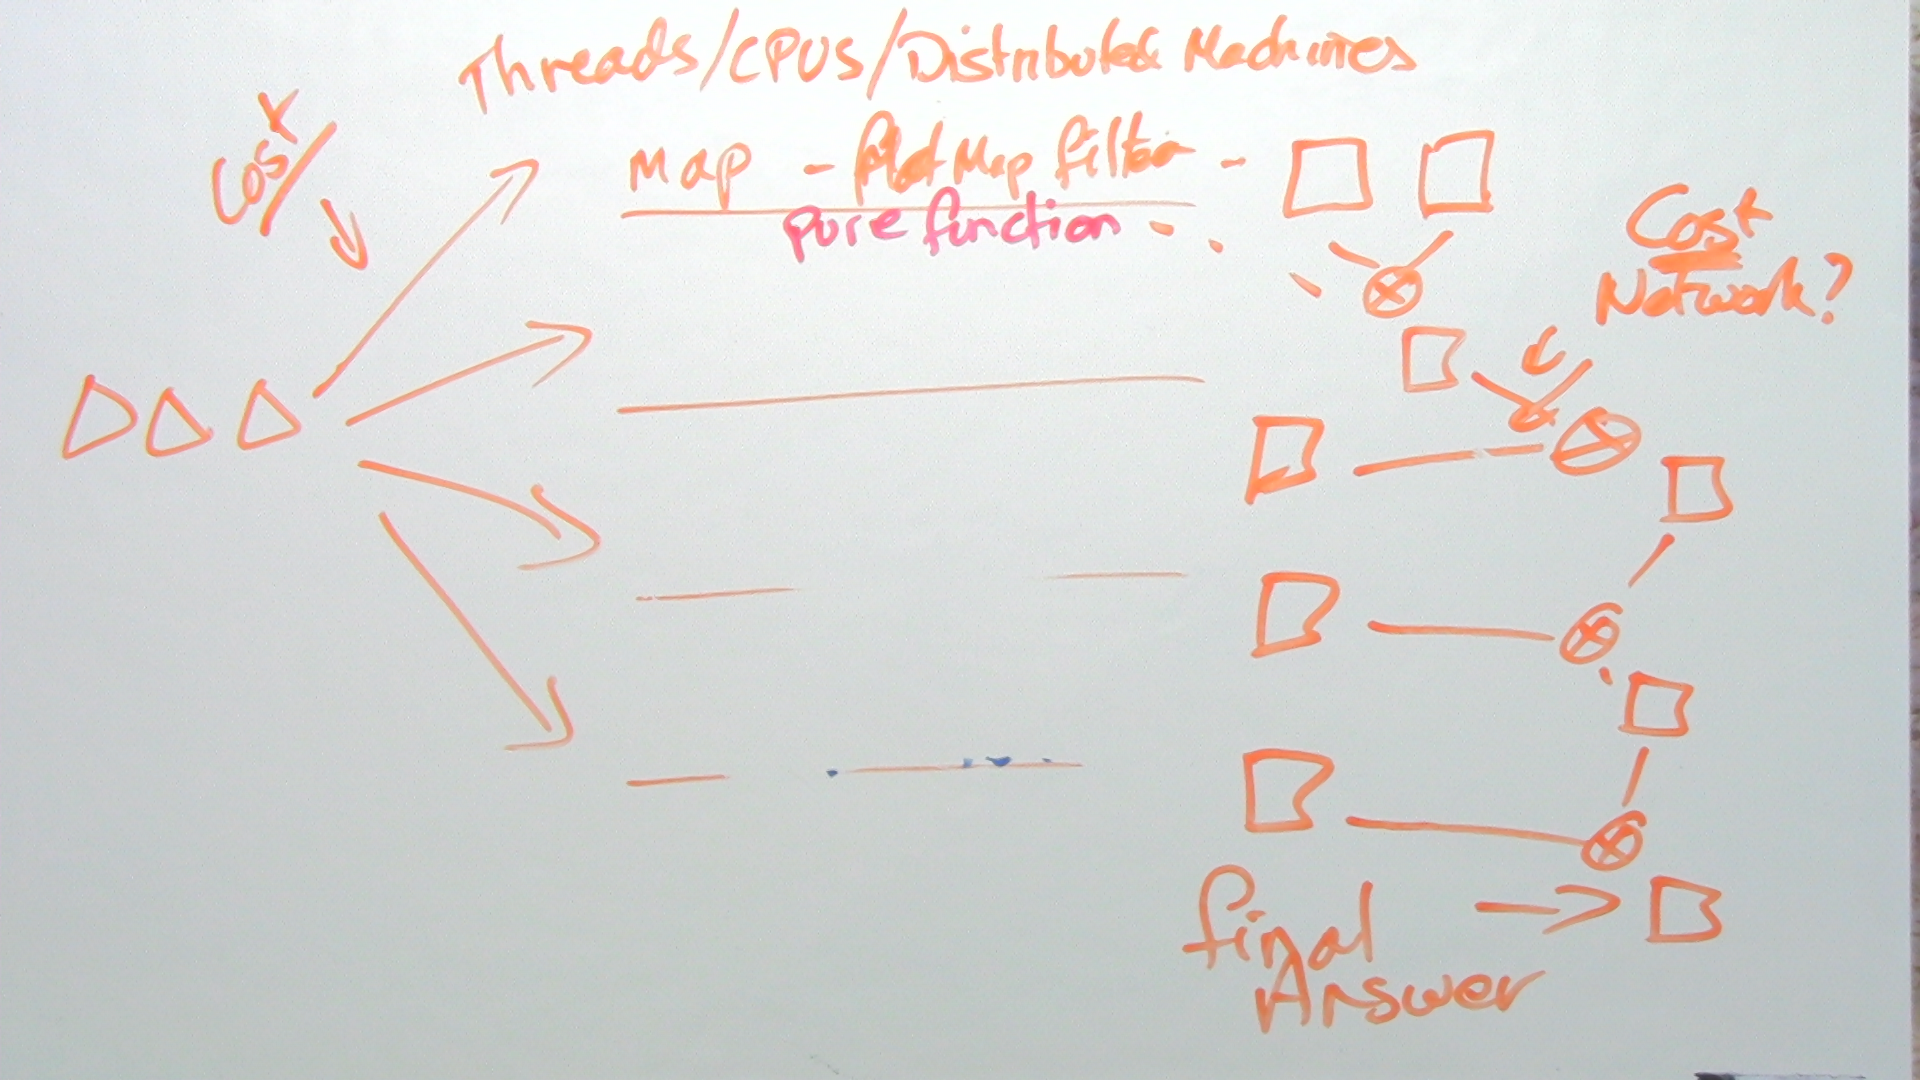 Threads/CPUS/Distributed Machines
Cost
Map - flatMap filter -
pure function
Cost
Network?
final
Answer